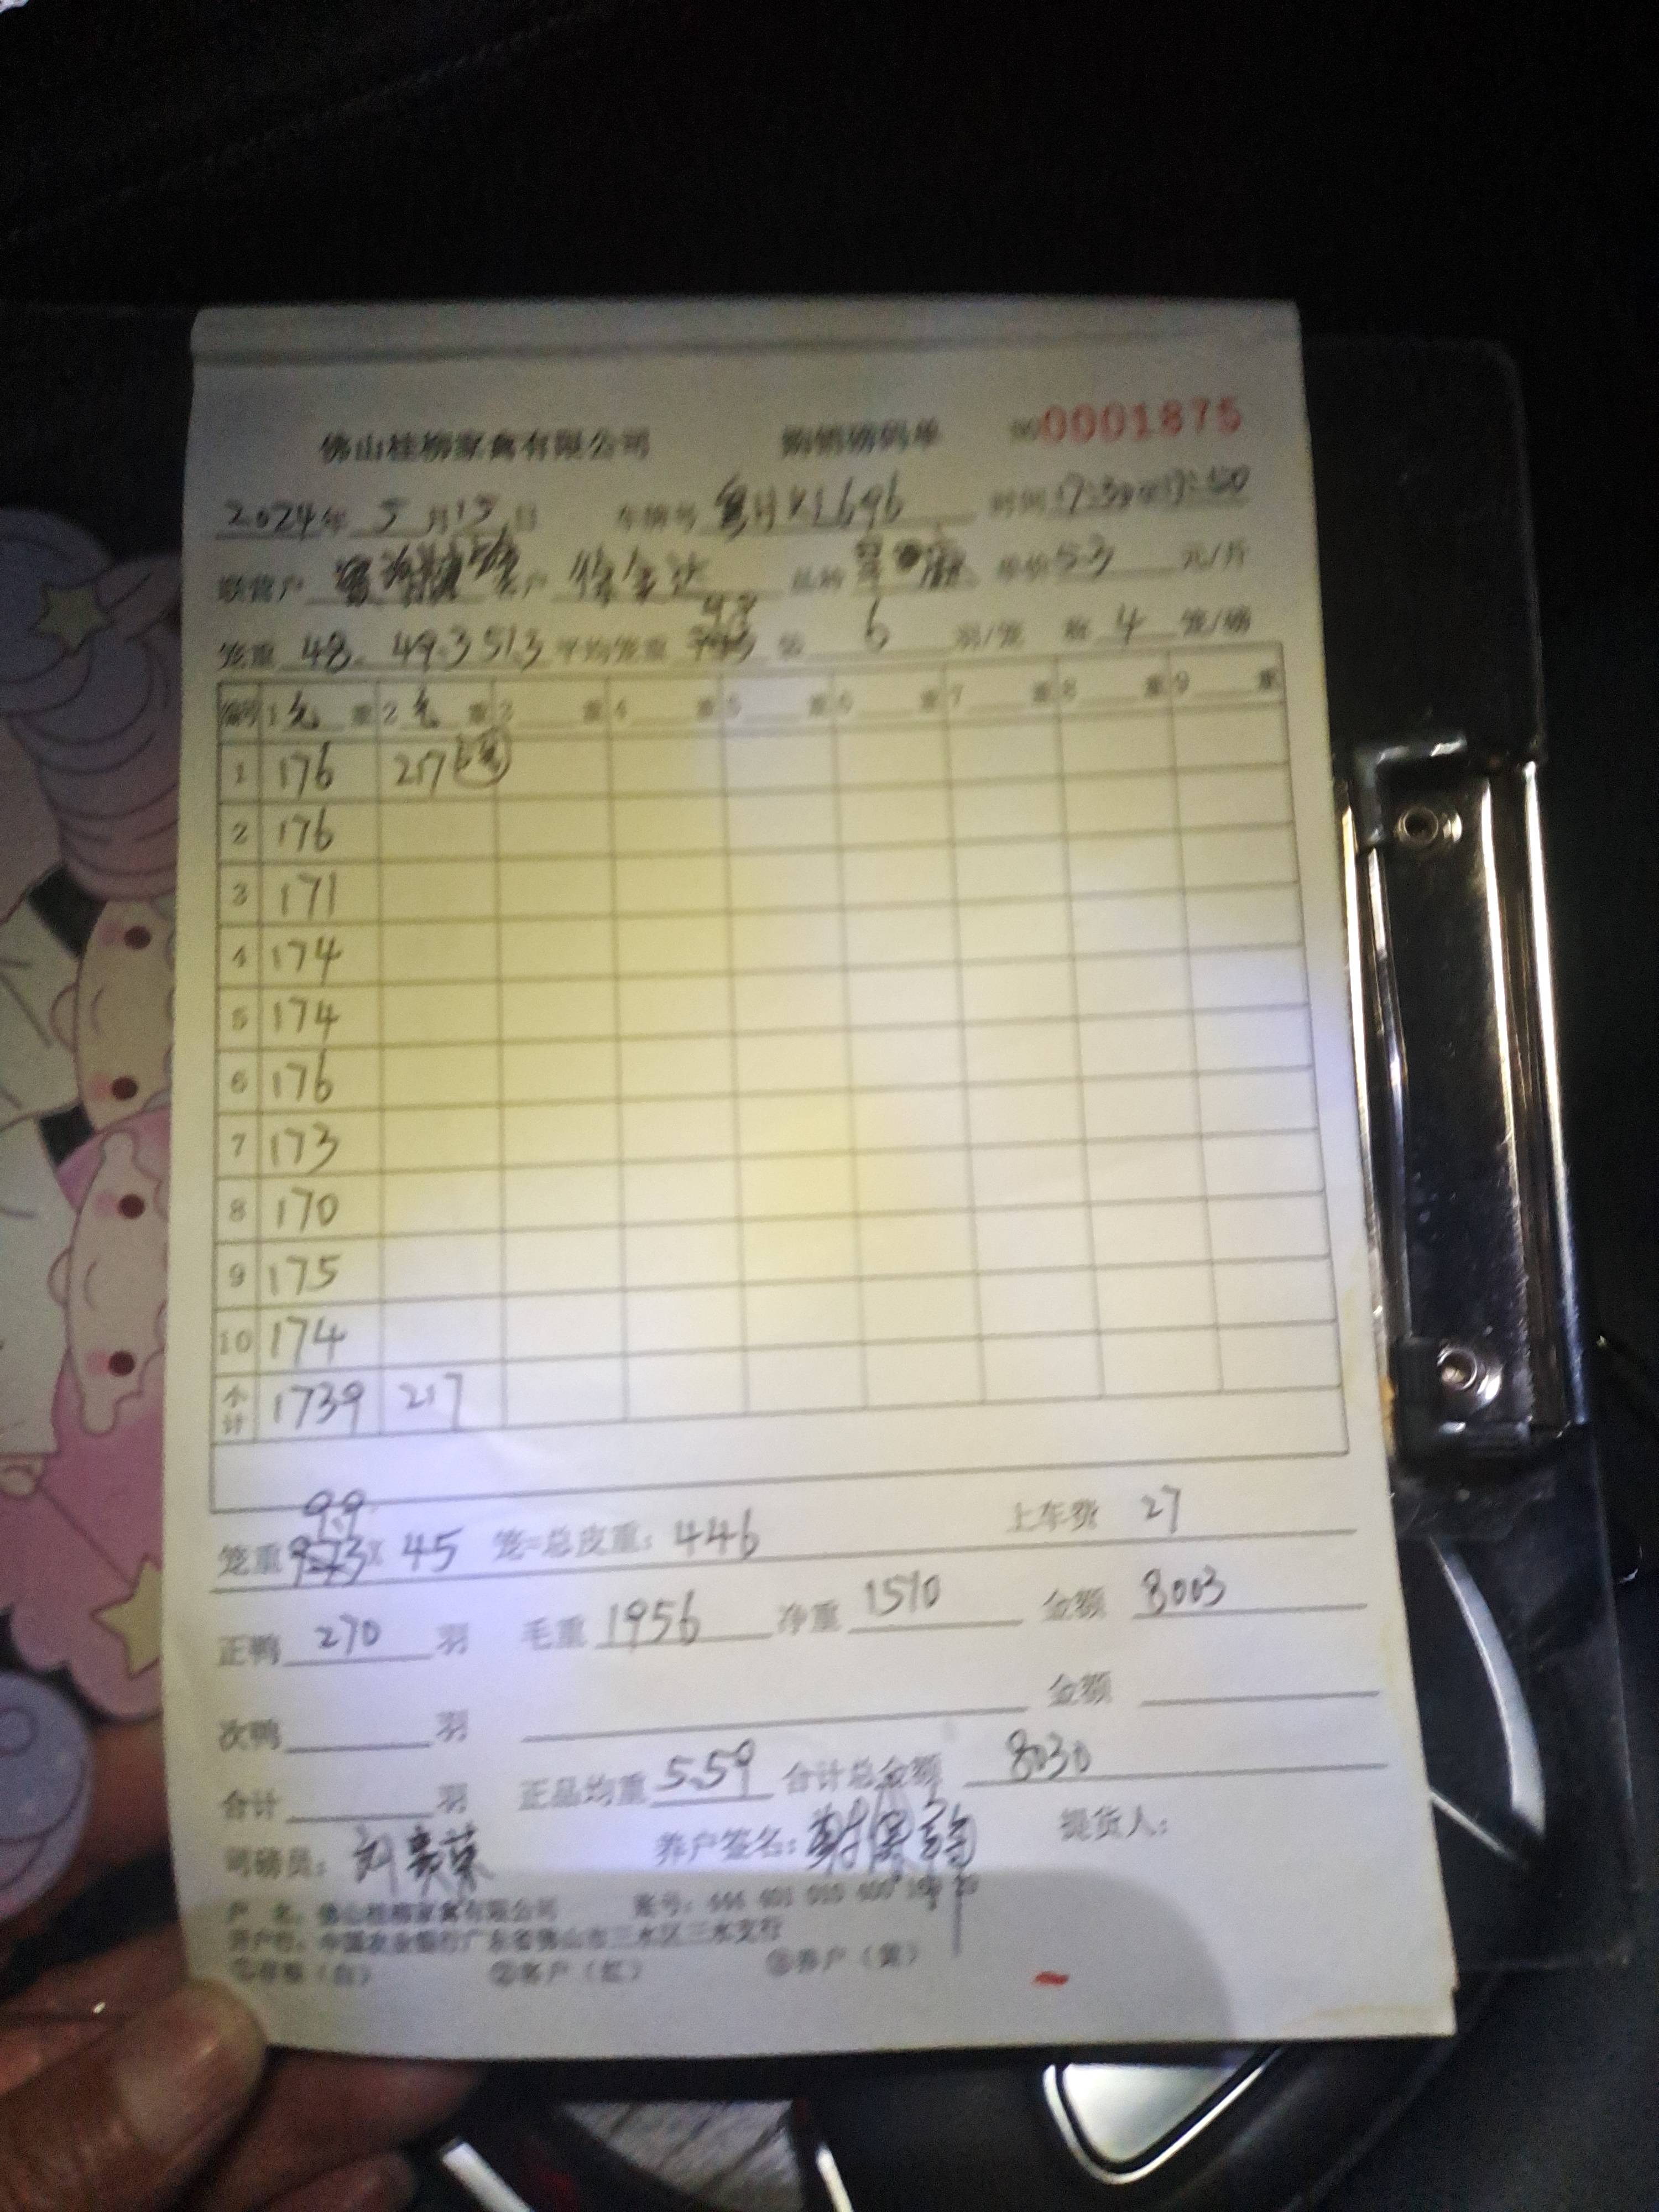 佛山桂柳家禽有限公司 购销磅码单 NO 0001875
2024年 5 月 15 日 车牌号 时间 17:30
联营户 客户 徐金达 品种 单价 5.3 元/斤
笼重 48. 49.3 51.3 平均笼重 装 6 羽/笼 每 4 笼/磅
编号 1 毛 重 2 毛 重 3 重 4 重 5 重 6 重 7 重 8 重 9 重
1 176 217
2 176
3 171
4 174
5 174
6 176
7 173
8 170
9 175
10 174
小计 1739 217
9.9
笼重 X 45 笼=总皮重: 446 上车费 27
正鸭 270 羽 毛重 1956 净重 1510 金额 8003
次鸭 羽 金额
合计 羽 正品均重 5.59 合计总金额 8030
司磅员: 养户签名: 提货人:
户 名: 佛山桂柳家禽有限公司 账号:
开户行: 中国农业银行广东省佛山市三水区三水支行
②客户（红） ③养户（黄）